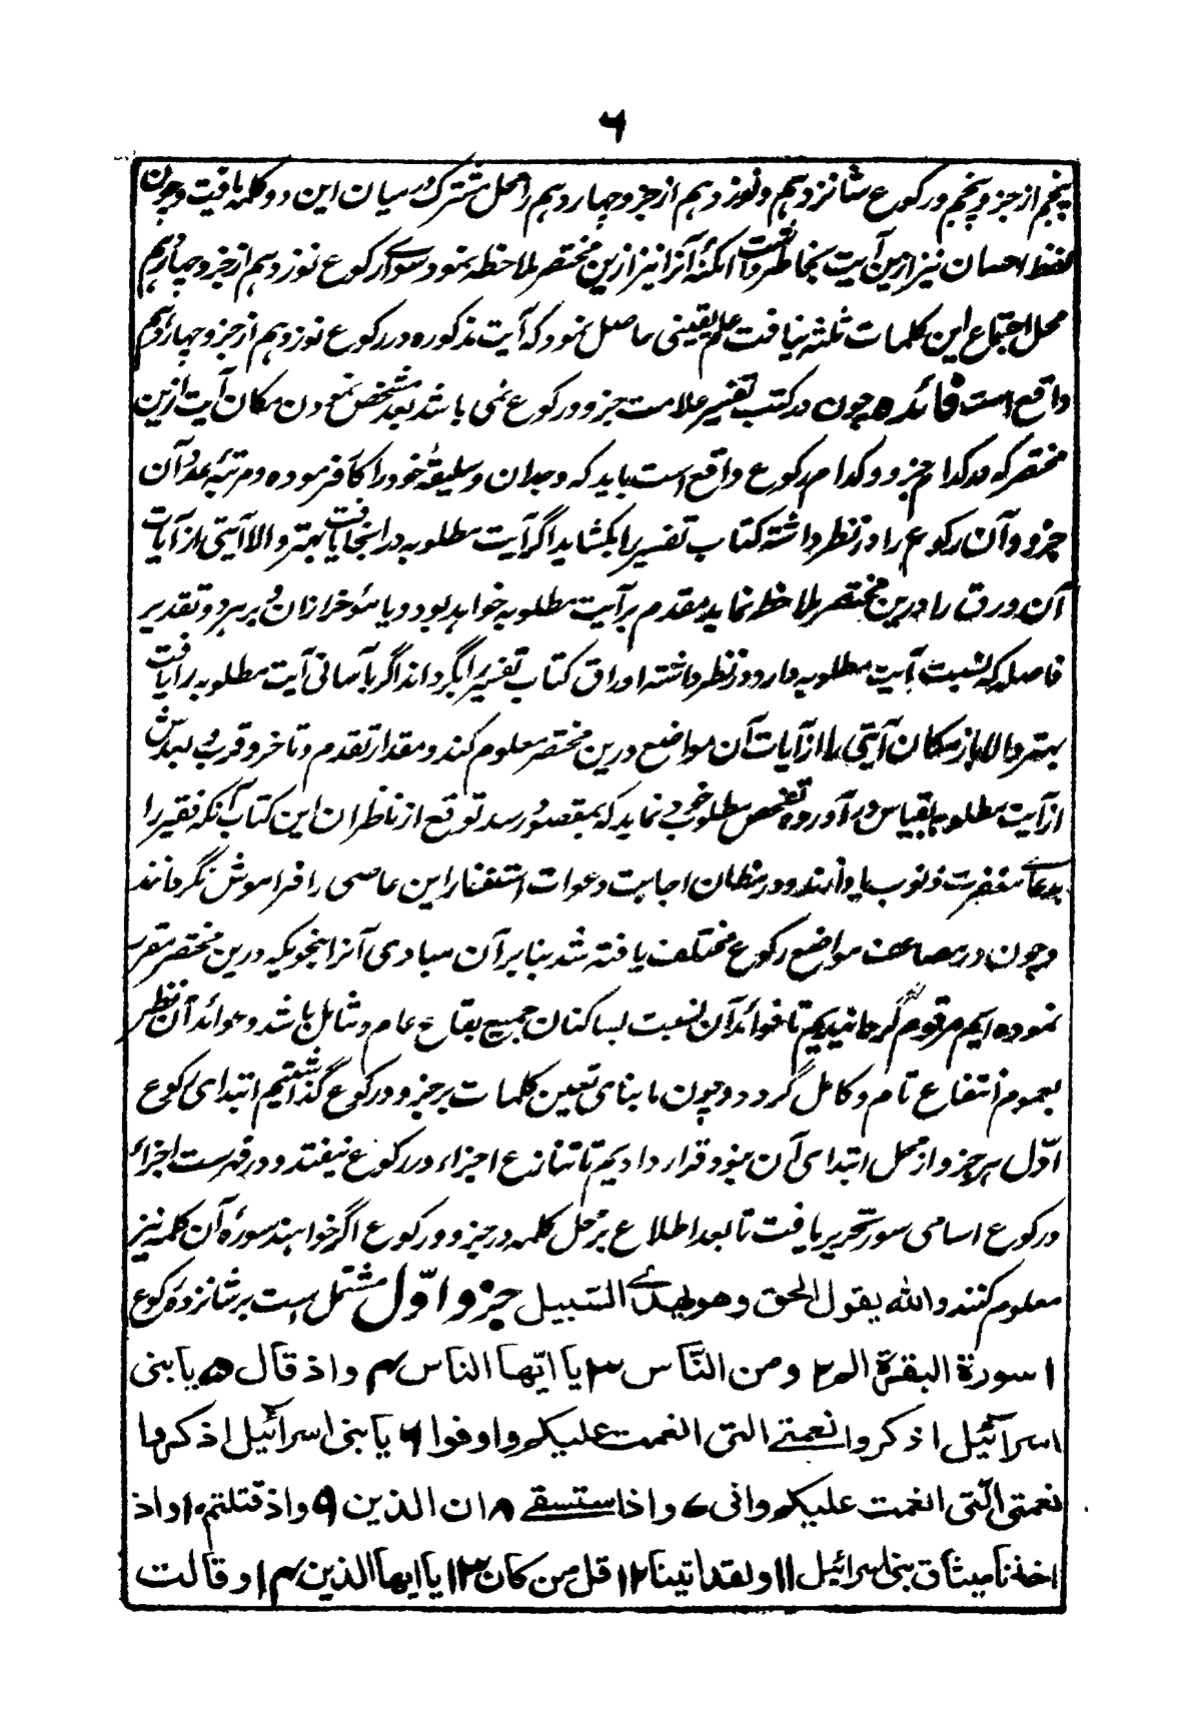 ۶
پنجم از جزو پنجم و رکوع شانزدهم و نوزدهم از جزو چهاردهم را محل مشترک در میان این دو کلمه یافت و چون
لفظ احسان نیز ازین آیت بخاطر داشت امکنهٔ آنرا نیز ازین مختصر ملاحظه نمود سوای رکوع نوزدهم از جزو چهاردهم
محل اجتماع این کلمات ثلثه نیافت علم یقینی حاصل نمود که آیت مذکوره در رکوع نوزدهم از جزو چهاردهم
واقع است فائده چون در کتب تفسیر علامت جزو و رکوع نمی باشد بعد مشخص نمودن مکان آیت ازین
مختصر که در کدام جزو و کدام رکوع واقع است باید که وجدان و سلیقهٔ خود را کار فرموده و مرتبهٔ عدد آن
جزو و آن رکوع را در نظر داشته کتاب تفسیر را بکشاید اگر آیت مطلوبه در انجا یافت بهتر و الا آیتی از آیات
آن ورق را درین مختصر ملاحظه نماید مقدم بر آیت مطلوبه خواهد بود و یا مؤخر ازان و بر هر دو تقدیر
فاصله که نسبت آیت مطلوبه دارد در نظر داشته اوراق کتاب تفسیر را بگرداند اگر بآسانی آیت مطلوبه را یافت
بهتر و الا باز مکان آیتی را از آیات آن مواضع درین مختصر معلوم کند و مقدار تقدم و تاخر و قرب و بعدش
از آیت مطلوبه بقیاس در آورده تفحص مطلوب خود نماید که بمقصود رسد توقع از ناظران این کتاب آنکه فقیر را
بدعاے مغفرت ذنوب یاد آرند و در مظان اجابت دعوات استغفار این عاصی را فراموش نگردانند
و چون در مصاحف مواضع رکوع مختلف یافته شد بنا بر آن مبادی آنرا بنحویکه درین مختصر مقرر
نموده ایم مرقوم گردانیدیم تا فوائد آن نسبت بساکنان جمیع بقاع عام و شامل باشد و عوائد آن نظر
بعموم انتفاع تام و کامل گردد و چون ما بنای تعیین کلمات بر جزو و رکوع گذاشتیم ابتدای رکوع
اوّل هر جزو از محل ابتدای آن جزو قرار دادیم تا تنازع اجزاء در رکوع نیفتد و در فهرست اجزاء
و رکوع اسامی سور تحریر یافت تا بعد اطلاع بر محل کلمه در جزو و رکوع اگر خواهند سورهٔ آن کلمه نیز
معلوم کنند والله یقول الحق وهو یهدے السّبیل جزو اوّل مشتمل است بر شانزده رکوع
۱ سورة البقرة الم ۲ ومن النّاس ۳ یا ایّها الناس ۴ واذ قال ۵ یا بنی
اسرآئیل اذکروا نعمتے التی انعمت علیکم واوفوا ۶ یا بنی اسرآئیل اذکروا
نعمتی الّتی انعمت علیکم وانی ۷ واذا ستسقے ۸ ان الذین ۹ واذ قتلتم ۱۰ واذ
اخذنا میثاق بنی اسرائیل ۱۱ ولقد اتینا ۱۲ قل من کان ۱۳ یا ایها الذین ۱۴ وقالت